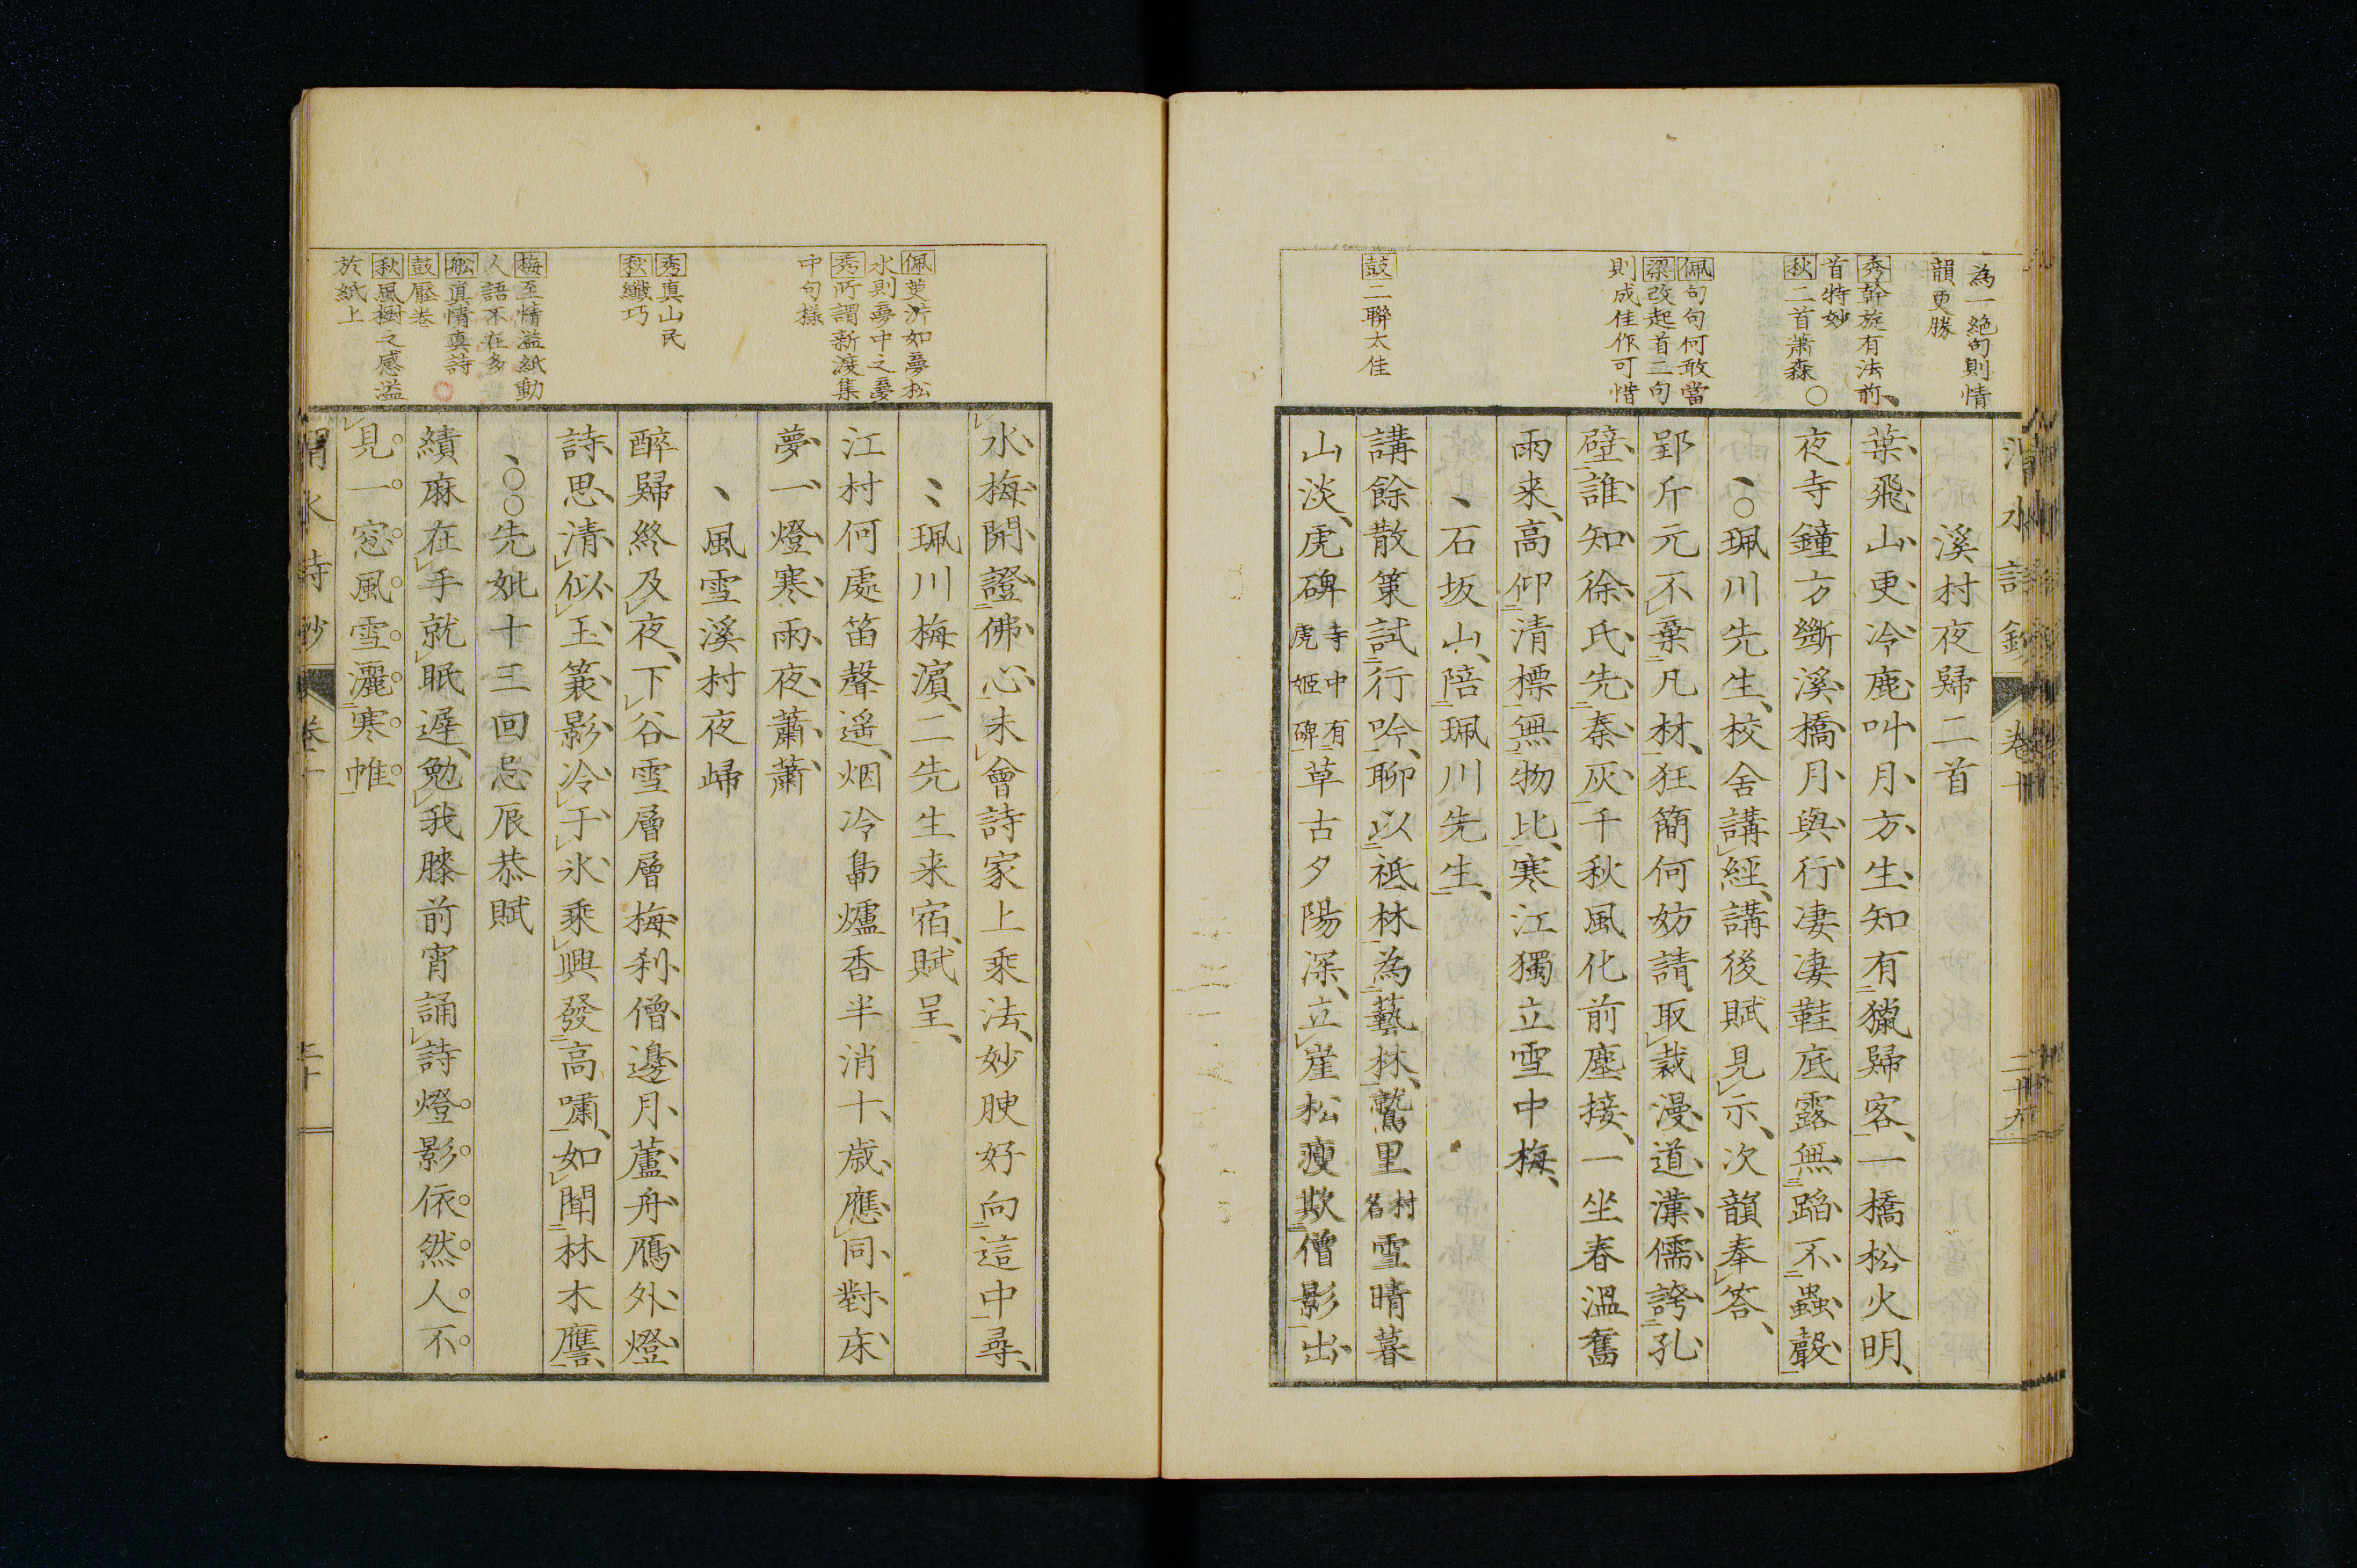 為一絶句則情
韻更勝
秀幹旋有法前
首特妙
秋二首蕭森
佩句句何敢當
梁改起首二句
則成佳作可惜
鼓二聯太佳
溪村夜歸二首
葉飛山更冷鹿叫月方生知有獵歸客一橋松火明
夜寺鐘方斷溪橋月與行凄凄鞋底露無蹈不蟲聲
珮川先生校舍講經講後賦見示次韻奉答
郢斤元不棄凡材狂簡何妨請取裁漫道漢儒誇孔
壁誰知徐氏先秦灰千秋風化前塵接一坐春溫舊
雨来高仰清標無物比寒江獨立雪中梅
石坂山陪珮川先生
講餘散策試行吟聊以祗林為藝林鷲里村名雪晴暮
山淡虎碑寺中有虎姬碑草古夕陽深立崖松瘦欺僧影出
卷十
二十九
佩萸沜如夢松
水則夢中之憂
秀所謂新渡集
中句様
秀真山民
秋纖巧
梅至情溢紙動
人語不在多
舩真情真詩
鼓壓卷
秋風樹之感溢
於紙上
水梅開證佛心未會詩家上乘法妙腴好向這中尋
珮川梅濵二先生来宿賦呈
江村何處笛聲遥烟冷島爐香半消十歳應同對床
夢一燈寒雨夜蕭蕭
風雪溪村夜歸
醉歸終及夜下谷雪層層梅刹僧邊月蘆舟鴈外燈
詩思清似玉簑影冷于氷乘興發高嘯如聞林木譍
先妣十三回忌辰恭賦
績麻在手就眠遲勉我膝前宵誦詩燈影依然人不
見一窓風雪灑寒帷